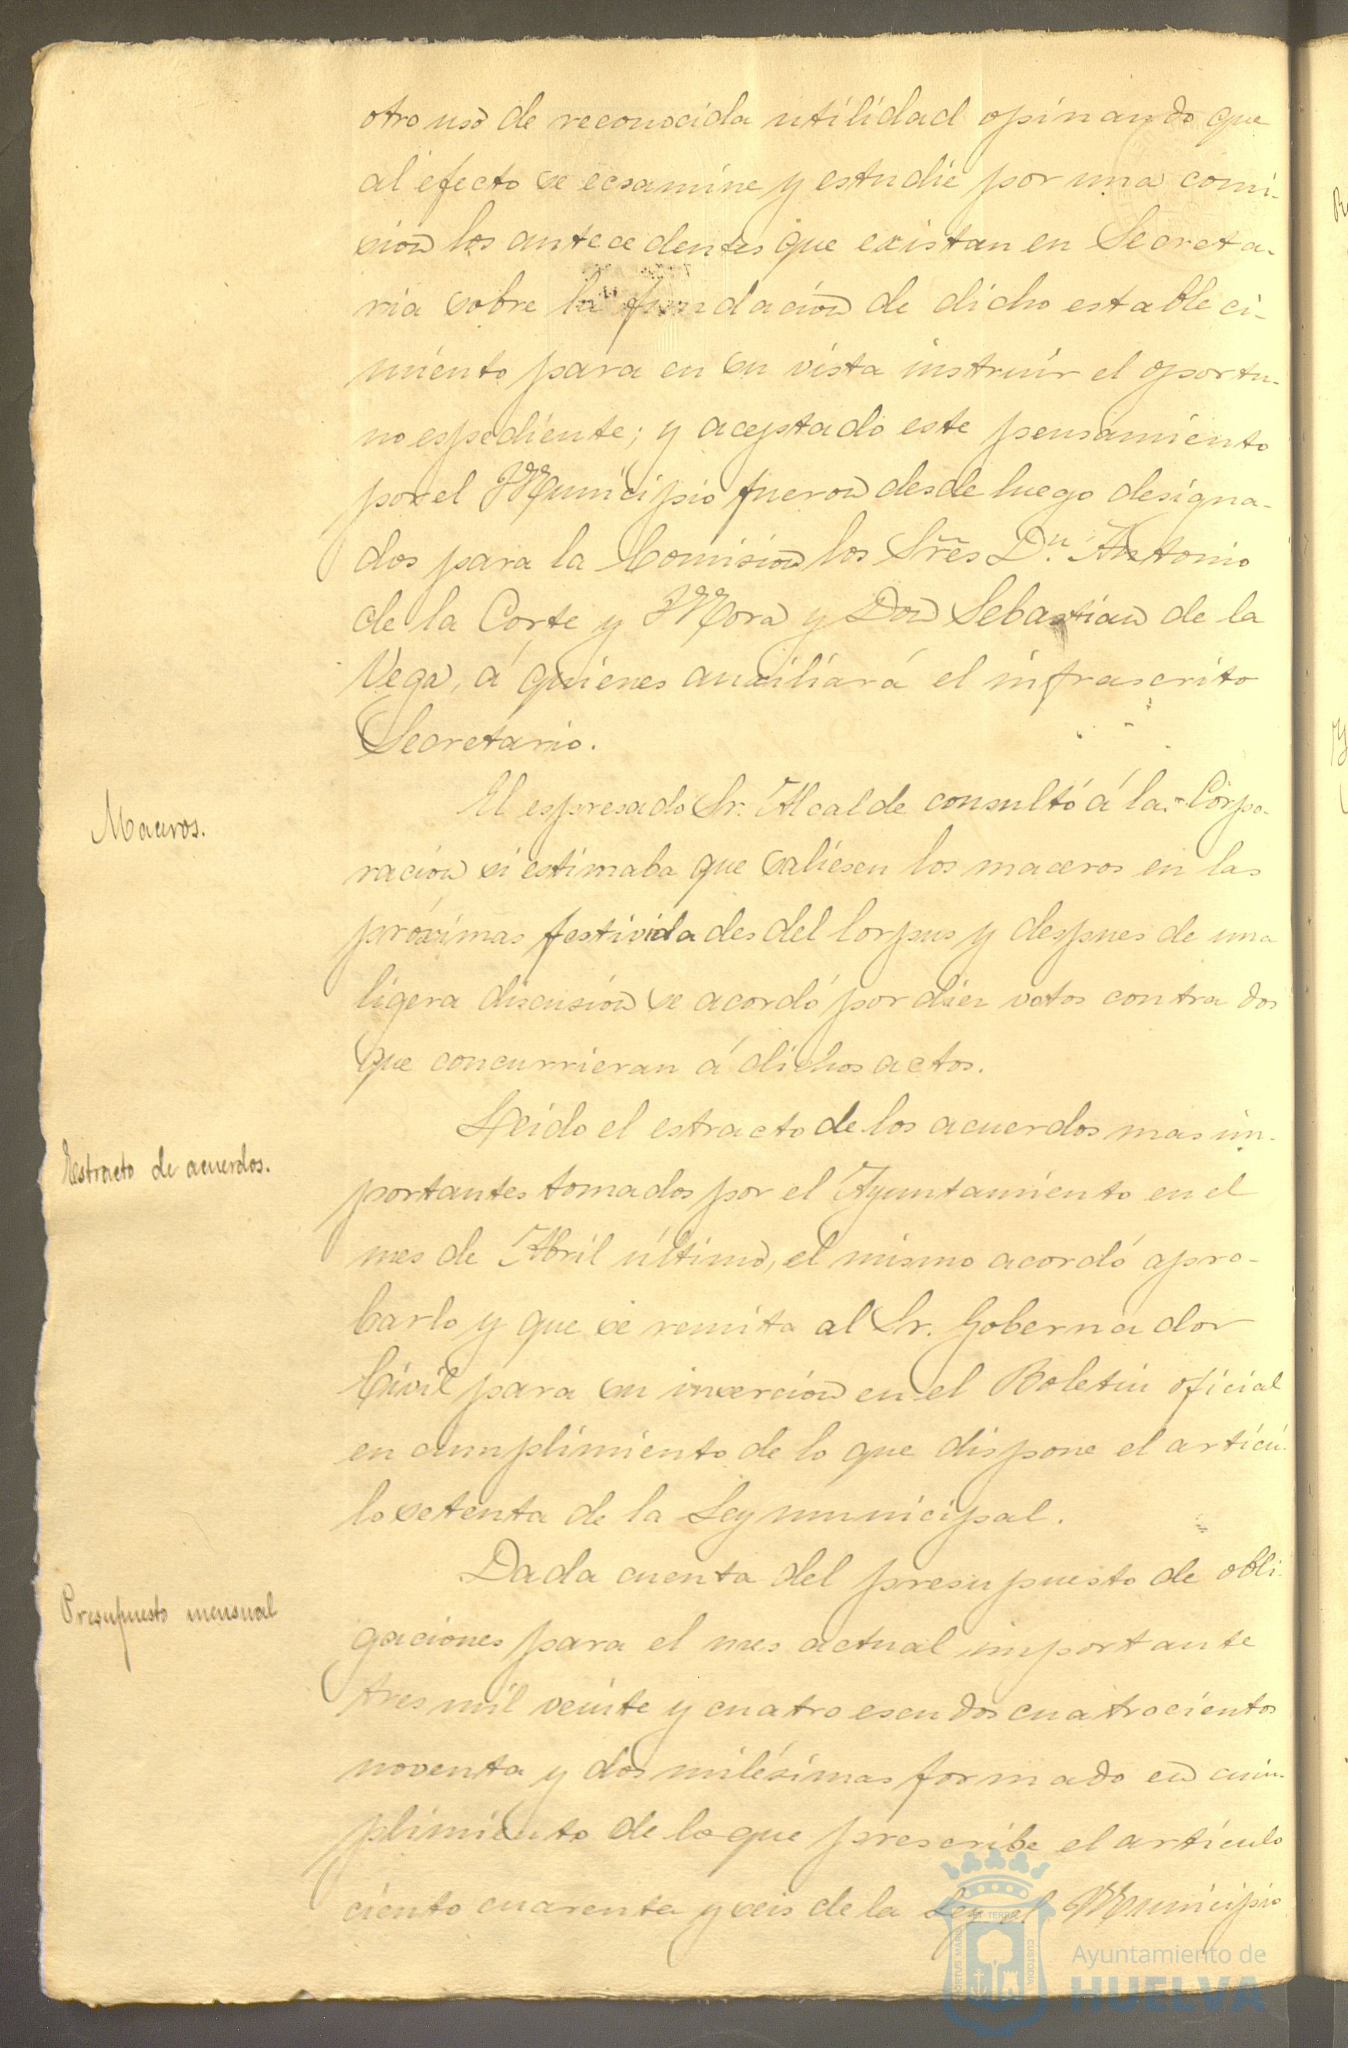 otro uso de reconocida utilidad opinando que
al efecto se ecsamine y estudie por una comi-
sion los antecedentes que existan en Secreta-
ria sobre la fundacion de dicho estableci-
miento para en su vista instruir el oportu-
no espediente; y aceptado este pensamiento
por el Municipio fueron desde luego designa-
dos para la Comision los Sres Dn. Antonio
de la Corte y Mora y Don Sebastian de la
Vega, á quienes auxiliará el infrascrito
Secretario.
Maceros.
El espresado Sr. Alcalde consultó á la Corpo-
racion si estimaba que saliesen los maceros en las
próximas festividades del Corpus y despues de una
ligera discusion se acordó por diez votos contra dos
que concurrieran á dichos actos.
Estracto de acuerdos.
Leido el estracto de los acuerdos mas im-
portantes tomados por el Ayuntamiento en el
mes de Abril último, el mismo acordó apro-
barlo y que se remita al Sr. Gobernador
Civil para su insercion en el Boletin oficial
en cumplimiento de lo que dispone el artícu-
lo setenta de la Ley municipal.
Presupuesto mensual
Dada cuenta del presupuesto de obli-
gaciones para el mes actual importante
tres mil veinte y cuatro escudos cuatrocientos
noventa y dos milésimas formado en cum-
plimiento de lo que prescribe el artículo
ciento cuarenta y seis de la Ley el Municipio
Ayuntamiento de
HUELVA